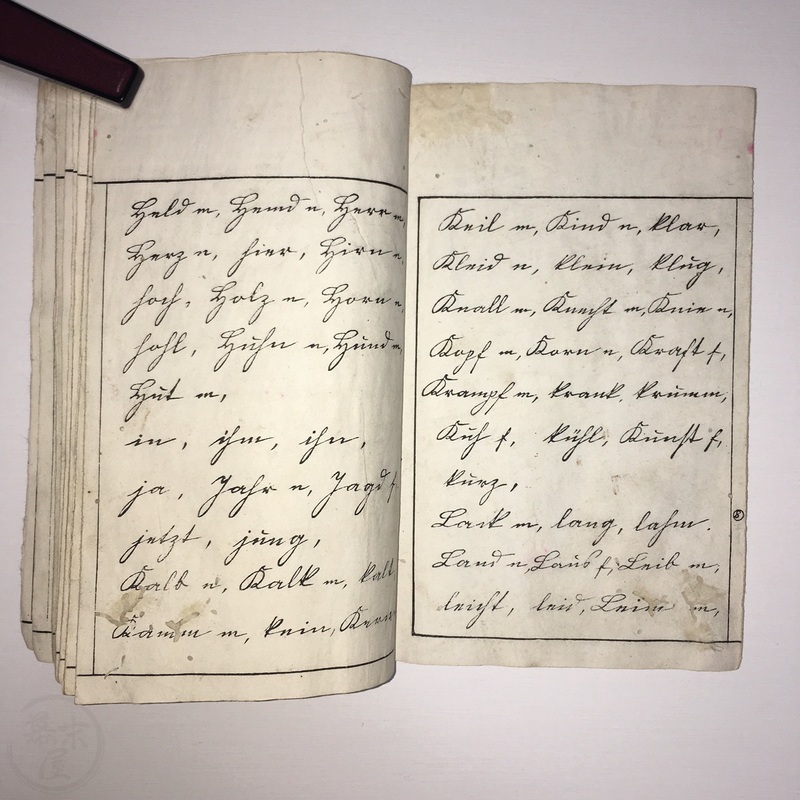 Held m, Hemd n, Herr m,
Herz n, hier, Hirn n,
hoch, Holz n, Horn n,
hohl, Huhn n, Hund m,
Hut m,
in, ihm, ihn,
ja, Jahr n, Jagd f
jetzt, jung,
Kalb n, Kalk m, kalt
Kamm m, kein, Kern
Keil m, Kind n, klar,
Kleid n, klein, klug,
Knall m, Knecht m, Knie n,
Kopf m, Korn n, Kraft f,
Krampf m, krank, krumm,
Kuh f, kühl, Kunst f,
kurz,
Lack m, lang, lahm.
Land n, Laus f, Leib m,
leicht, leid, Leim m,